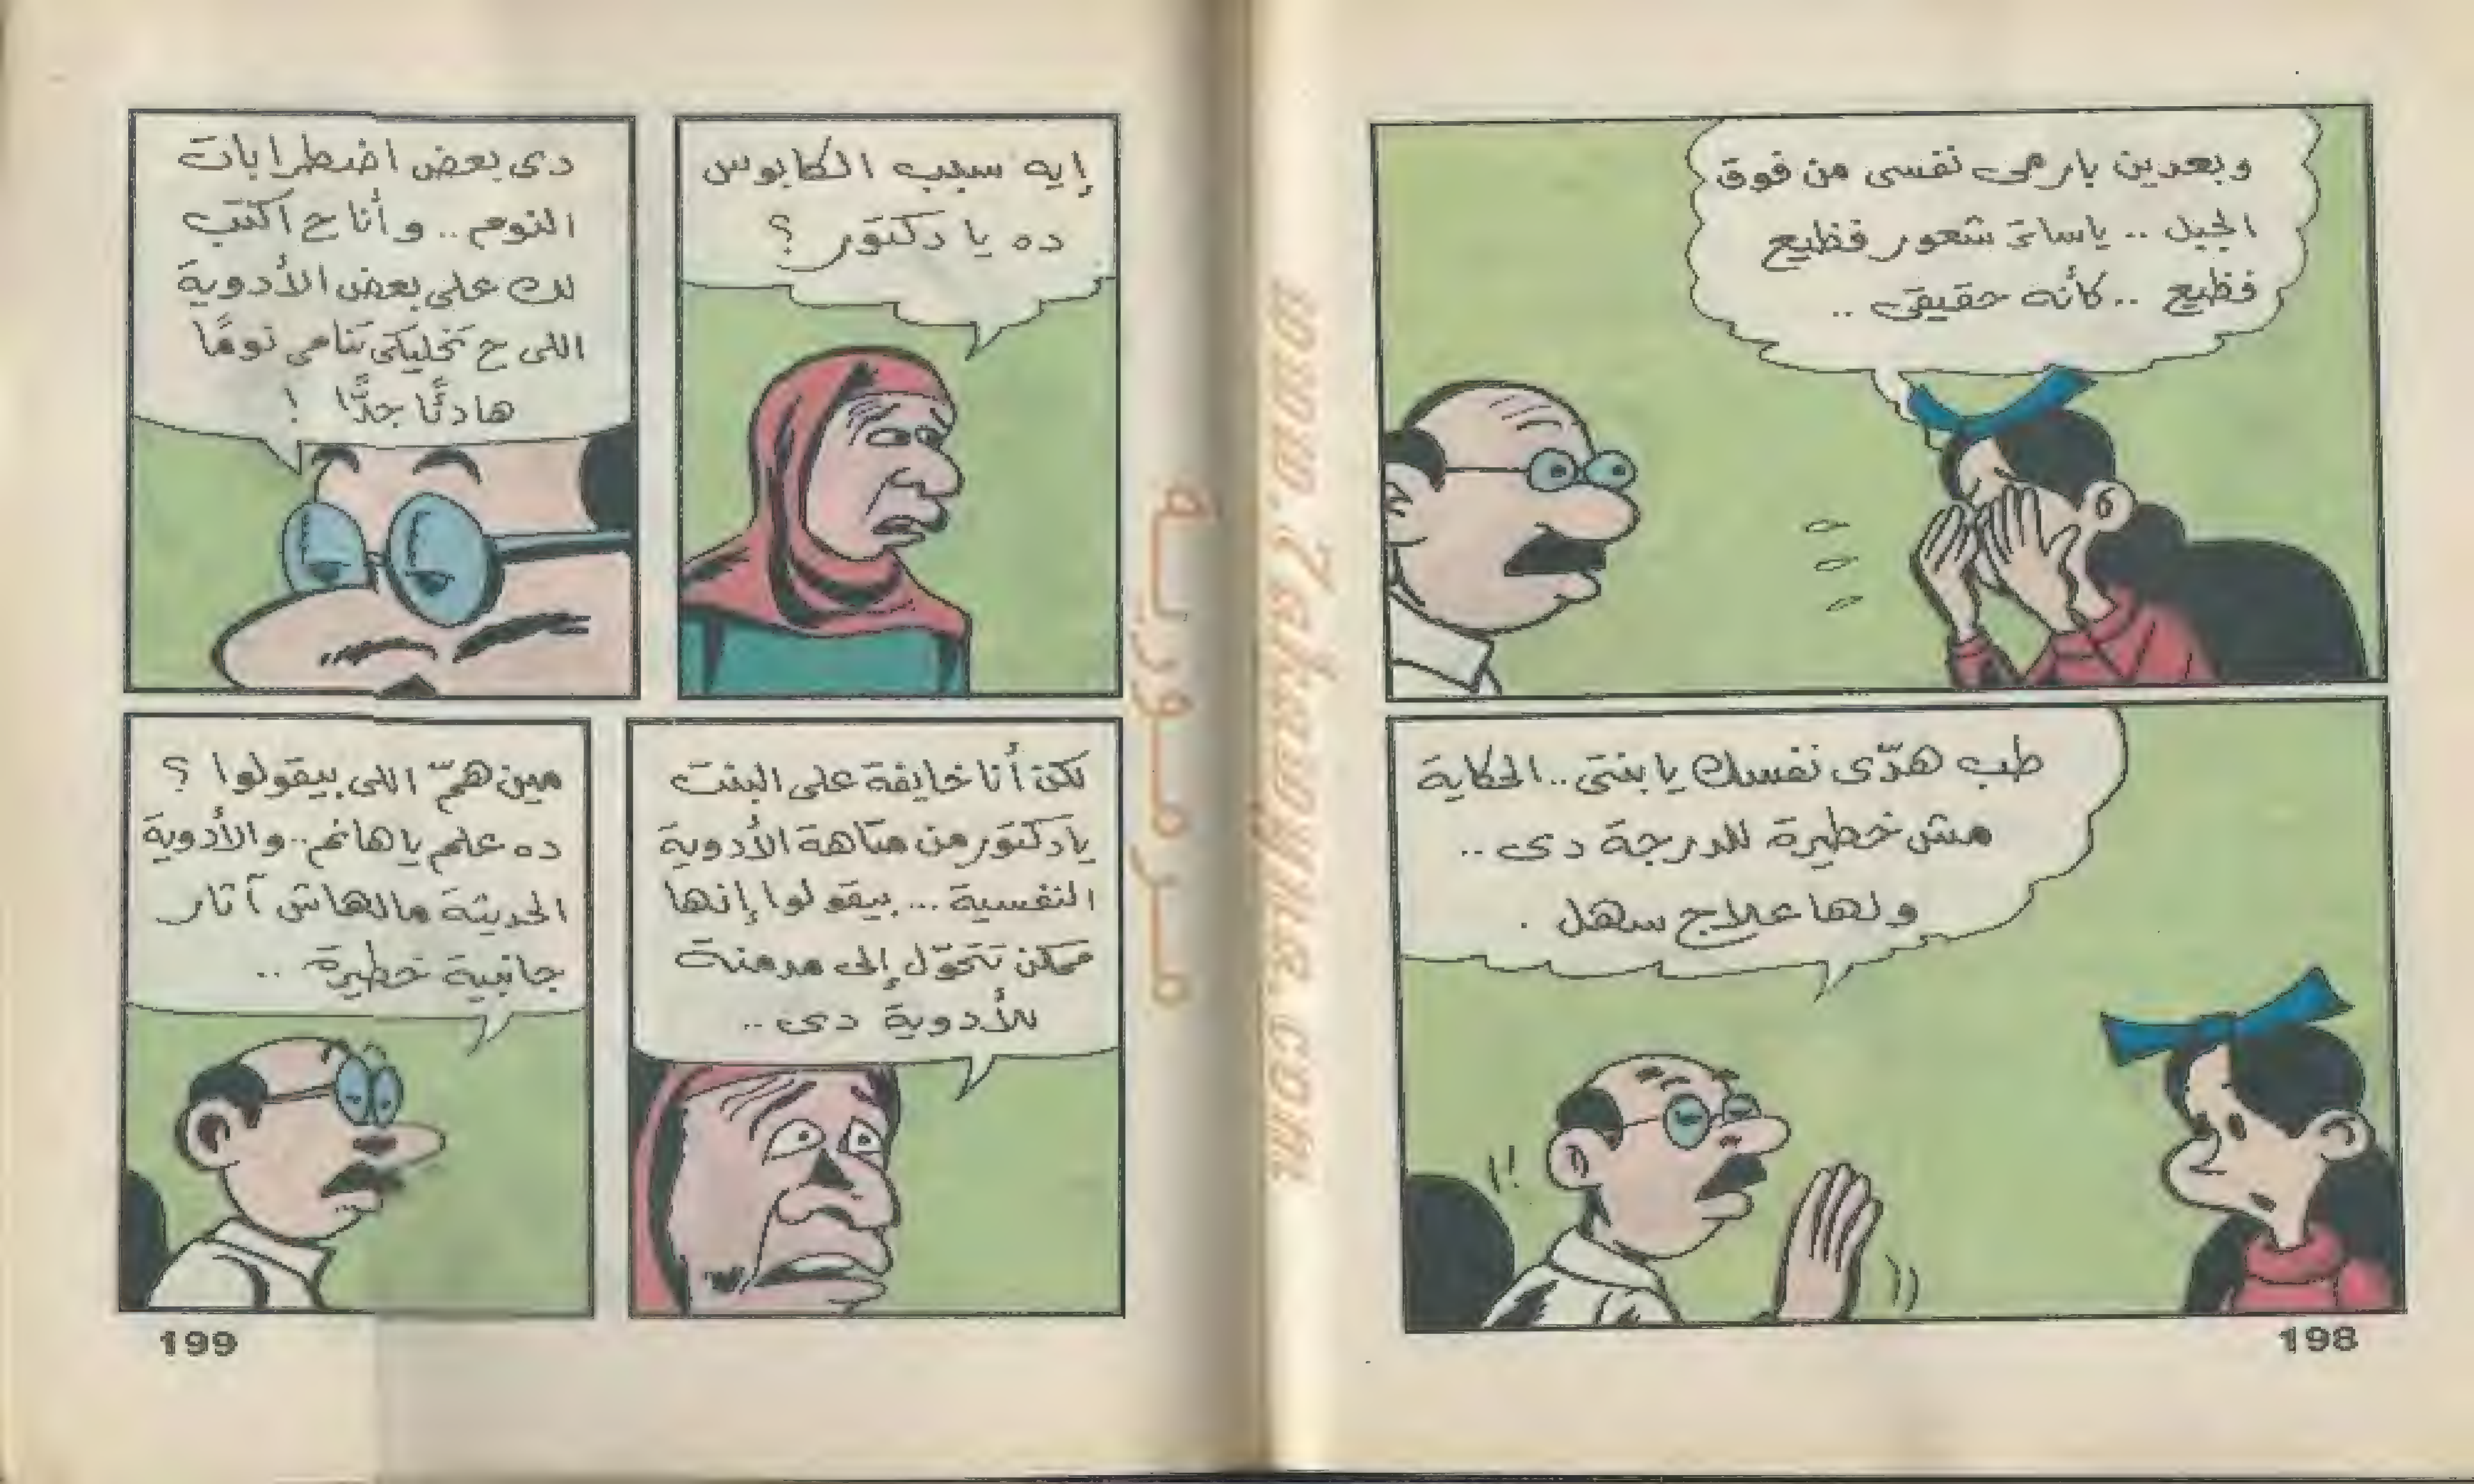 وبعدين بارمى نفسى من فوق
الجبل .. ياساتر شعور فظيع
فظيع .. كأنه حقيقى ..
طب هدّى نفسك يا بنتى .. الحكاية
مش خطيرة للدرجة دى ..
ولها علاج سهل .
198
إيه سبب الكابوس
ده يا دكتور ؟
دى بعض اضطرابات
النوم .. وأنا ح أكتب
لك على بعض الأدوية
اللى ح تخليكى تنامى نومًا
هادئًا جدًّا !
لكن أنا خايفة على البنت
يا دكتور من متاهة الأدوية
النفسية ... بيقولوا إنها
ممكن تتحوّل إلى مدمنة
للأدوية دى ..
مين همّ اللى بيقولوا ؟
ده علم يا هانم .. والأدوية
الحديثة مالهاش آثار
جانبية خطيرة ..
199